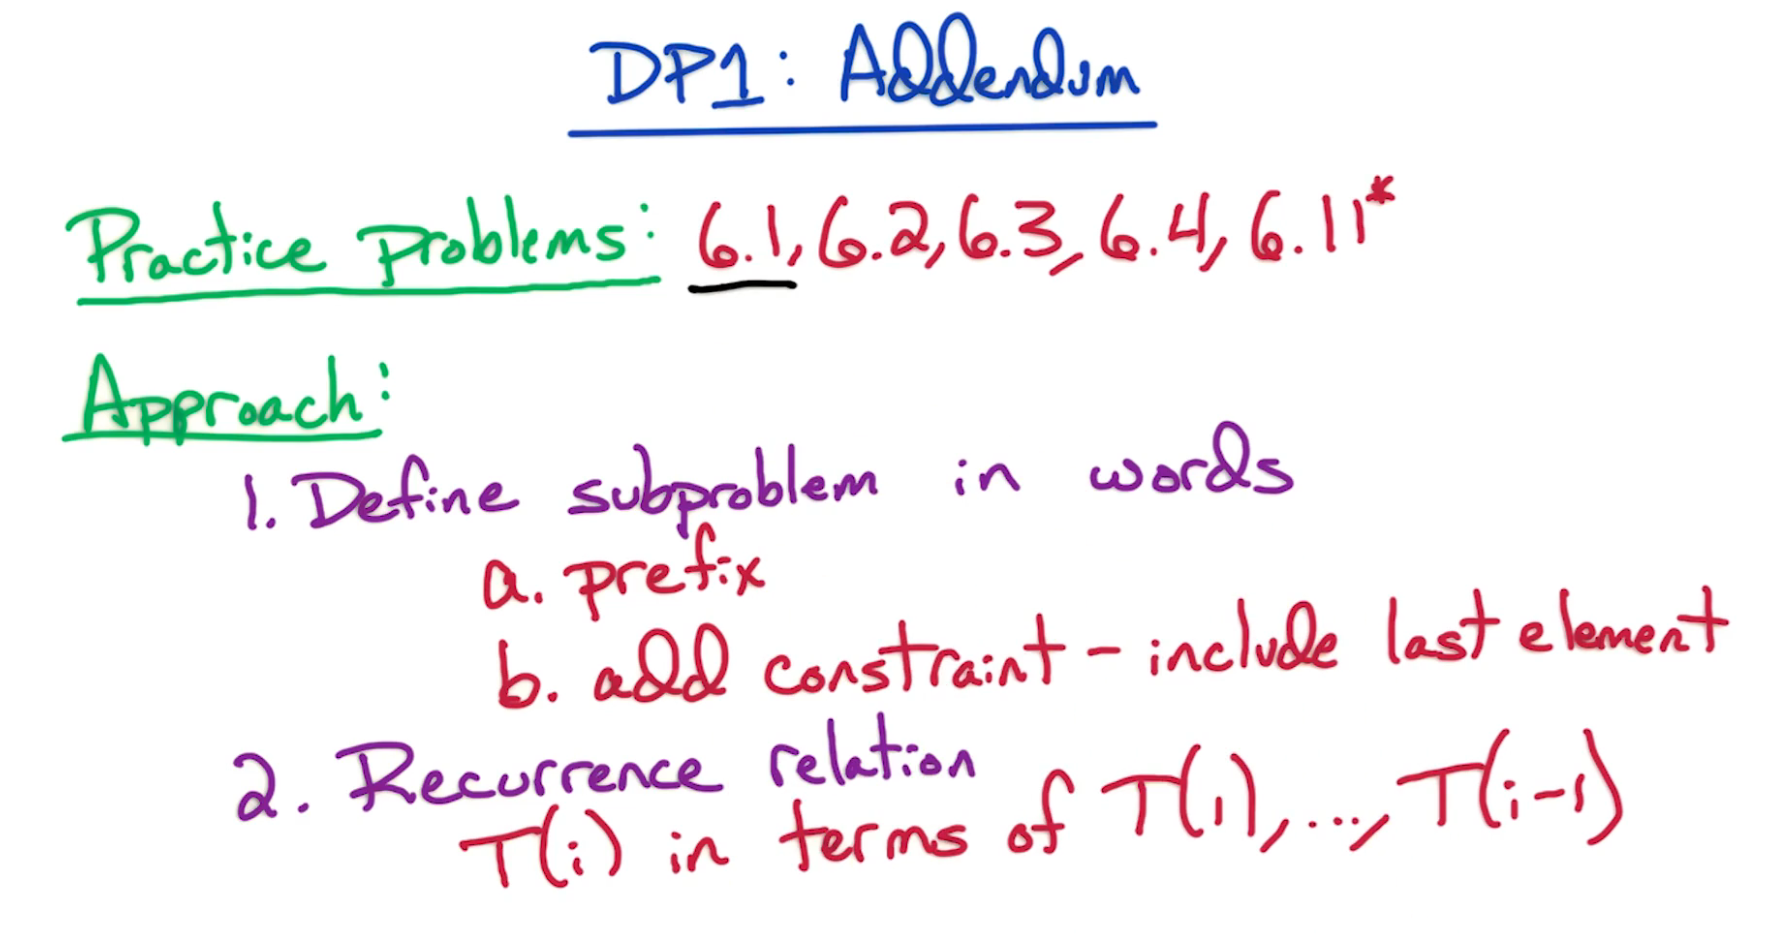 DP1: Addendum
Practice problems: 6.1, 6.2, 6.3, 6.4, 6.11*
Approach:
1. Define subproblem in words
a. prefix
b. add constraint - include last element
2. Recurrence relation
T(i) in terms of T(1), ..., T(i-1)